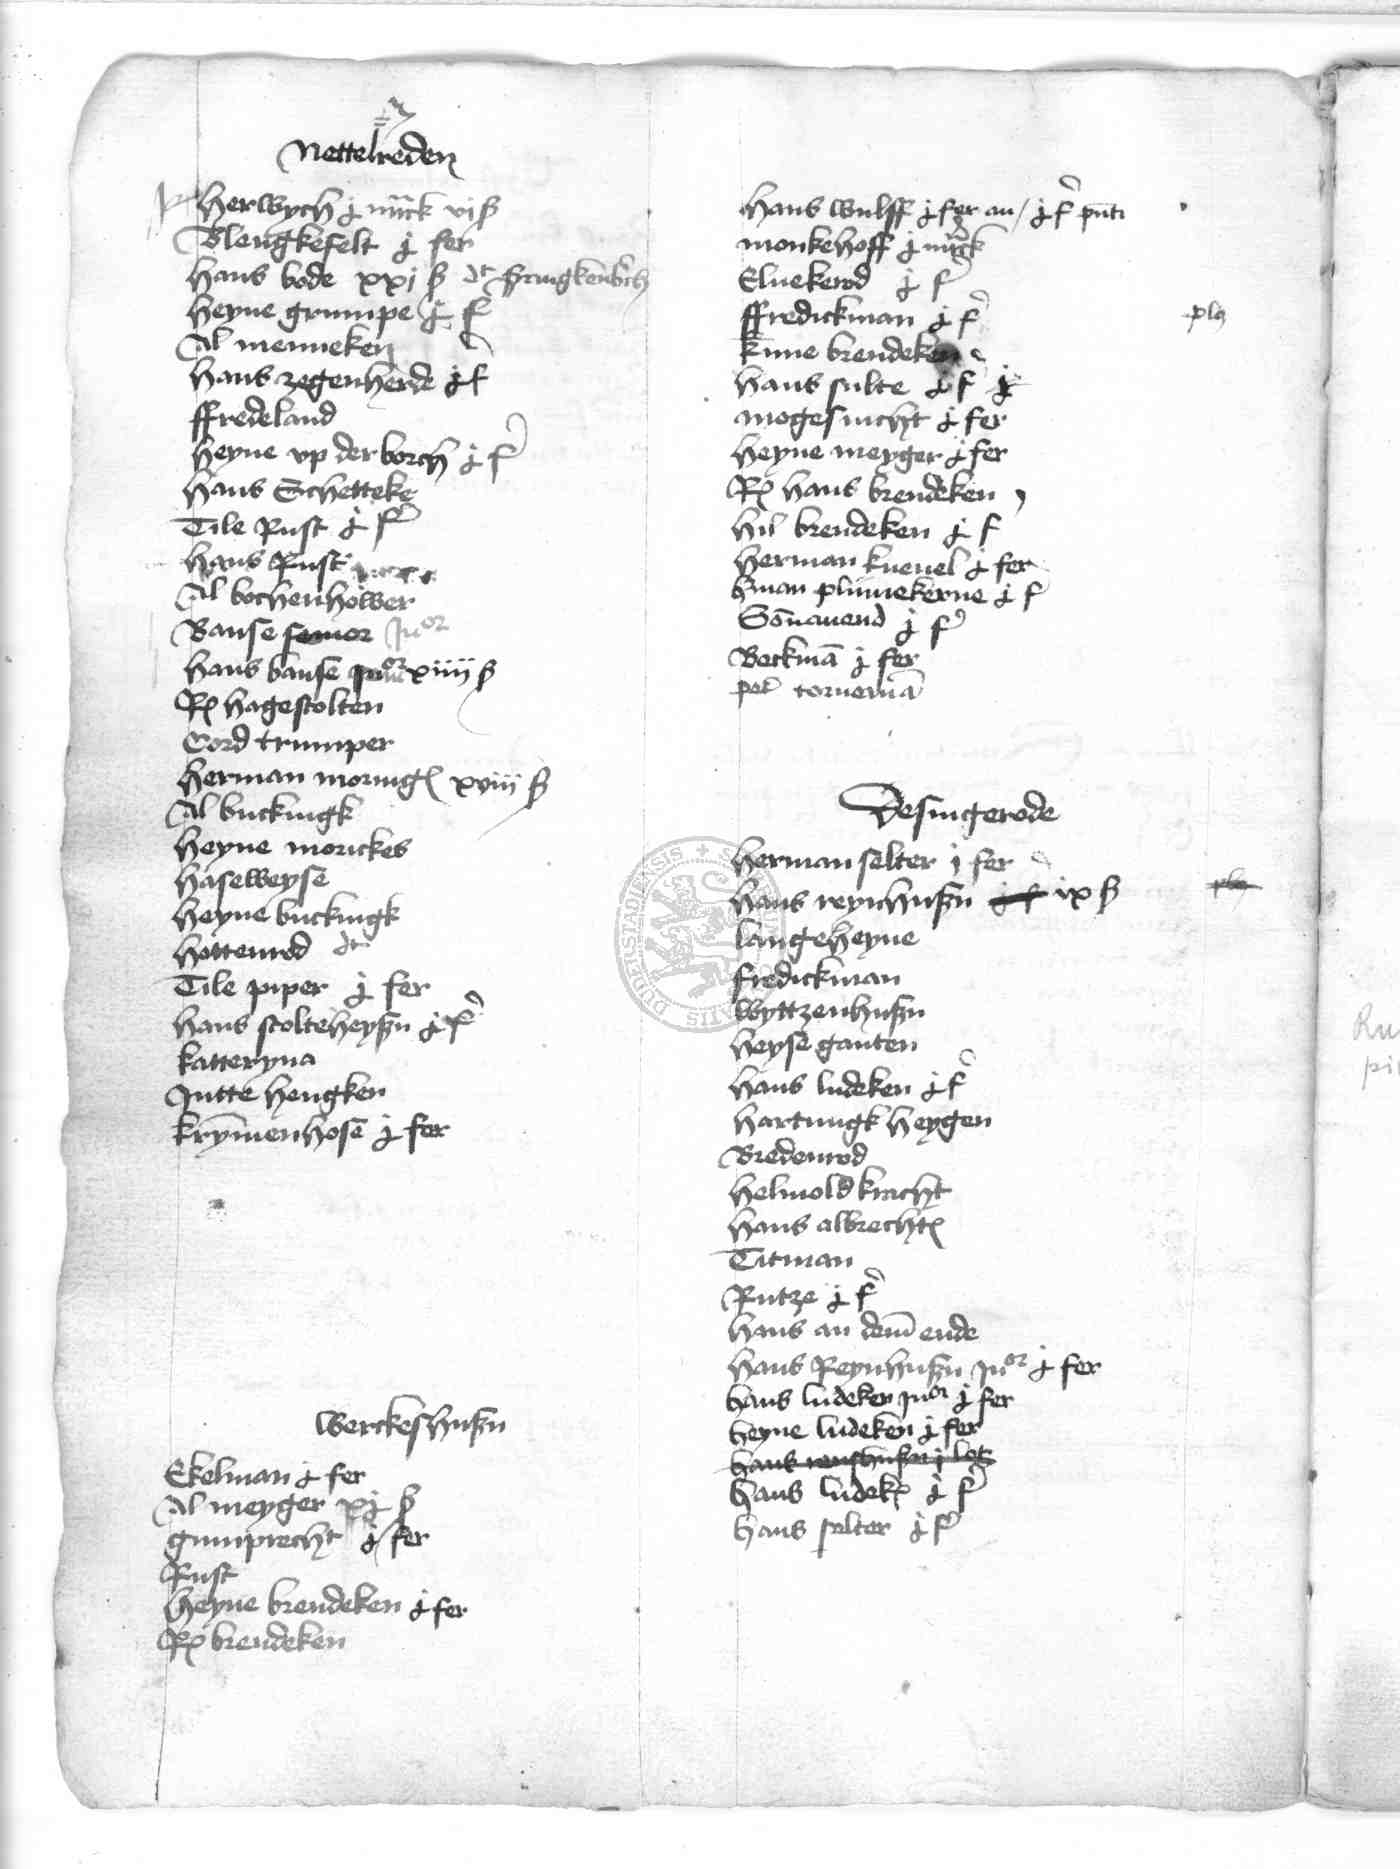 Nettelreden
Herwych j mrck vj ß
Blengkefelt j fer
Hans bode xxj ß dt
Heyne grumpe j f
Al menneken
Hans zegenherde j f
ffredeland
Heyne vp der borch j f
Hans Schetteke
Tile Rust j f
Hans Rust
Al bochenhower
Banse senior Juor
Hans banse xiiij ß
hagestolten
Cord trumper
Herman moring xviij ß
Al buckingk
Heyne morickes
Haseweyse
Heyne buckingk
Hottenrod dt
Tile piper j fer
Hans stolteheyßn j f
Katteryna
Jutte hengken
Krymenhose j fer
Werckeshußn
Ekelman j fer
Al meyger xj ß
gumprecht j fer
Rust
Heyne brendeken j fer
brendeken
Hans wulff j fer an / j f
monkehoff j mrck
Eluekerod j f
ffredickman j f
plg
Kune brendeken
Hans sulte j f
mogesnicht j fer
Heyne meyger j fer
Hans brendeken
Hil brendeken j f
Herman knenel j fer
Hman plumekerne j f
Sonauend j f
Beckma j fer
pet tornema
Desingerode
Herman selter j fer
Hans reynhußn j f ix ß
plg
langeheyne
fredickman
Wyttzenhußn
Heyse ganten
Hans ludeken j f
Hartungk heygen
Bredenrod
Helmold kracht
Hans albrecht
Titman
Rutze j f
Hans an dem ende
Hans Reynhußn Juor j fer
Hans ludeken Juor j fer
Heyne ludeken j fer
Hans j lot
Hans ludek j f
Hans selter j f